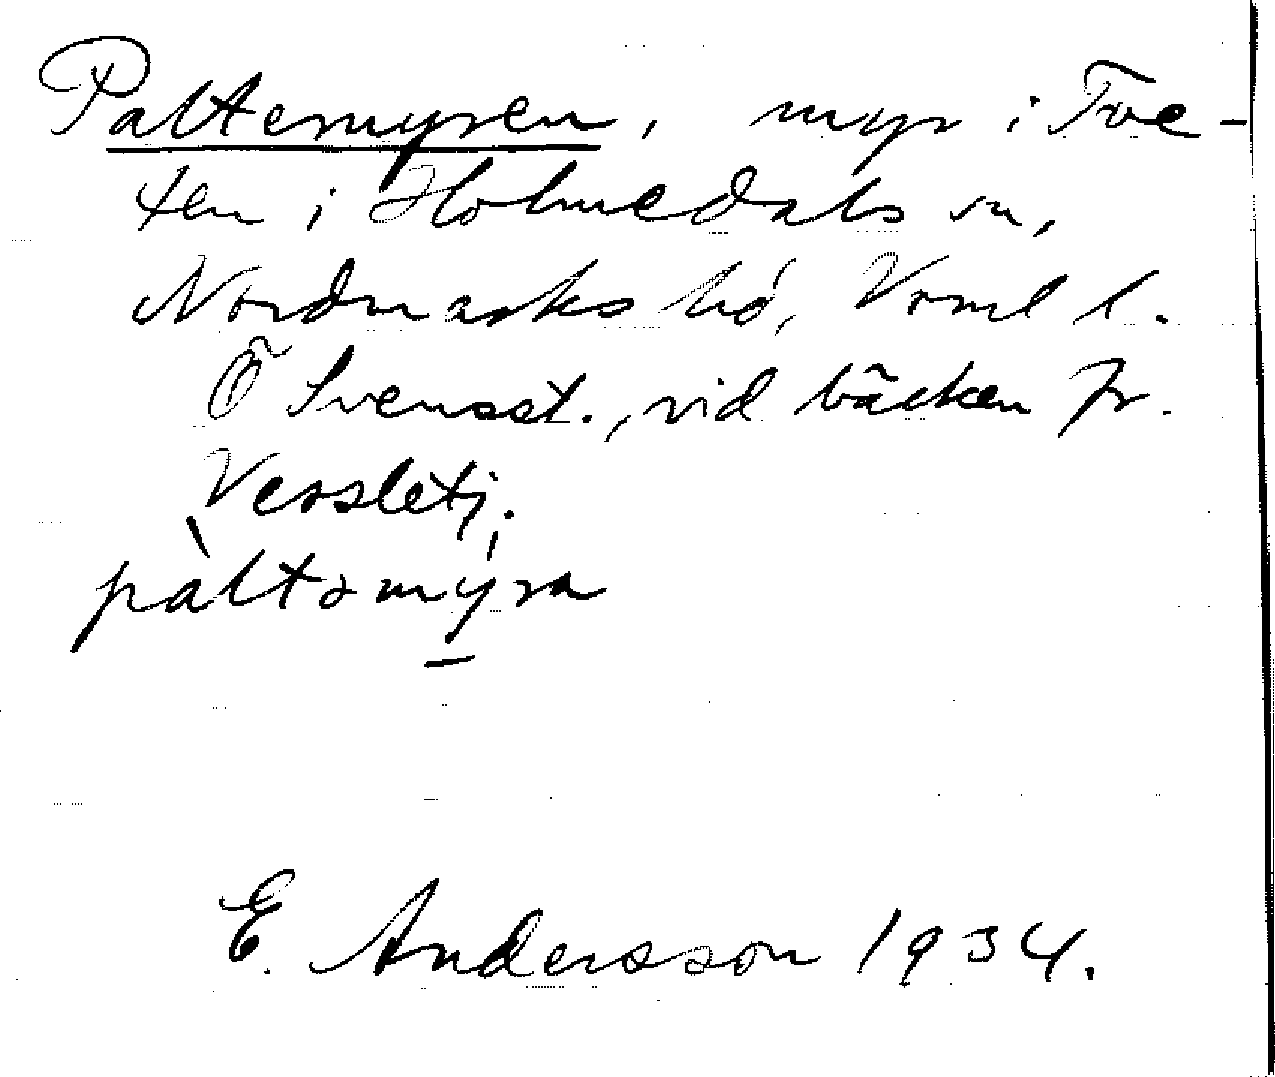 Paltemyren, myr i Tve-
ten i Holmedals sn,
Nordmarks hd, Vrml l.
Ö Svensst., vid bäcken fr.
Versletj.
pàltamýra
E. Andersson 1934.